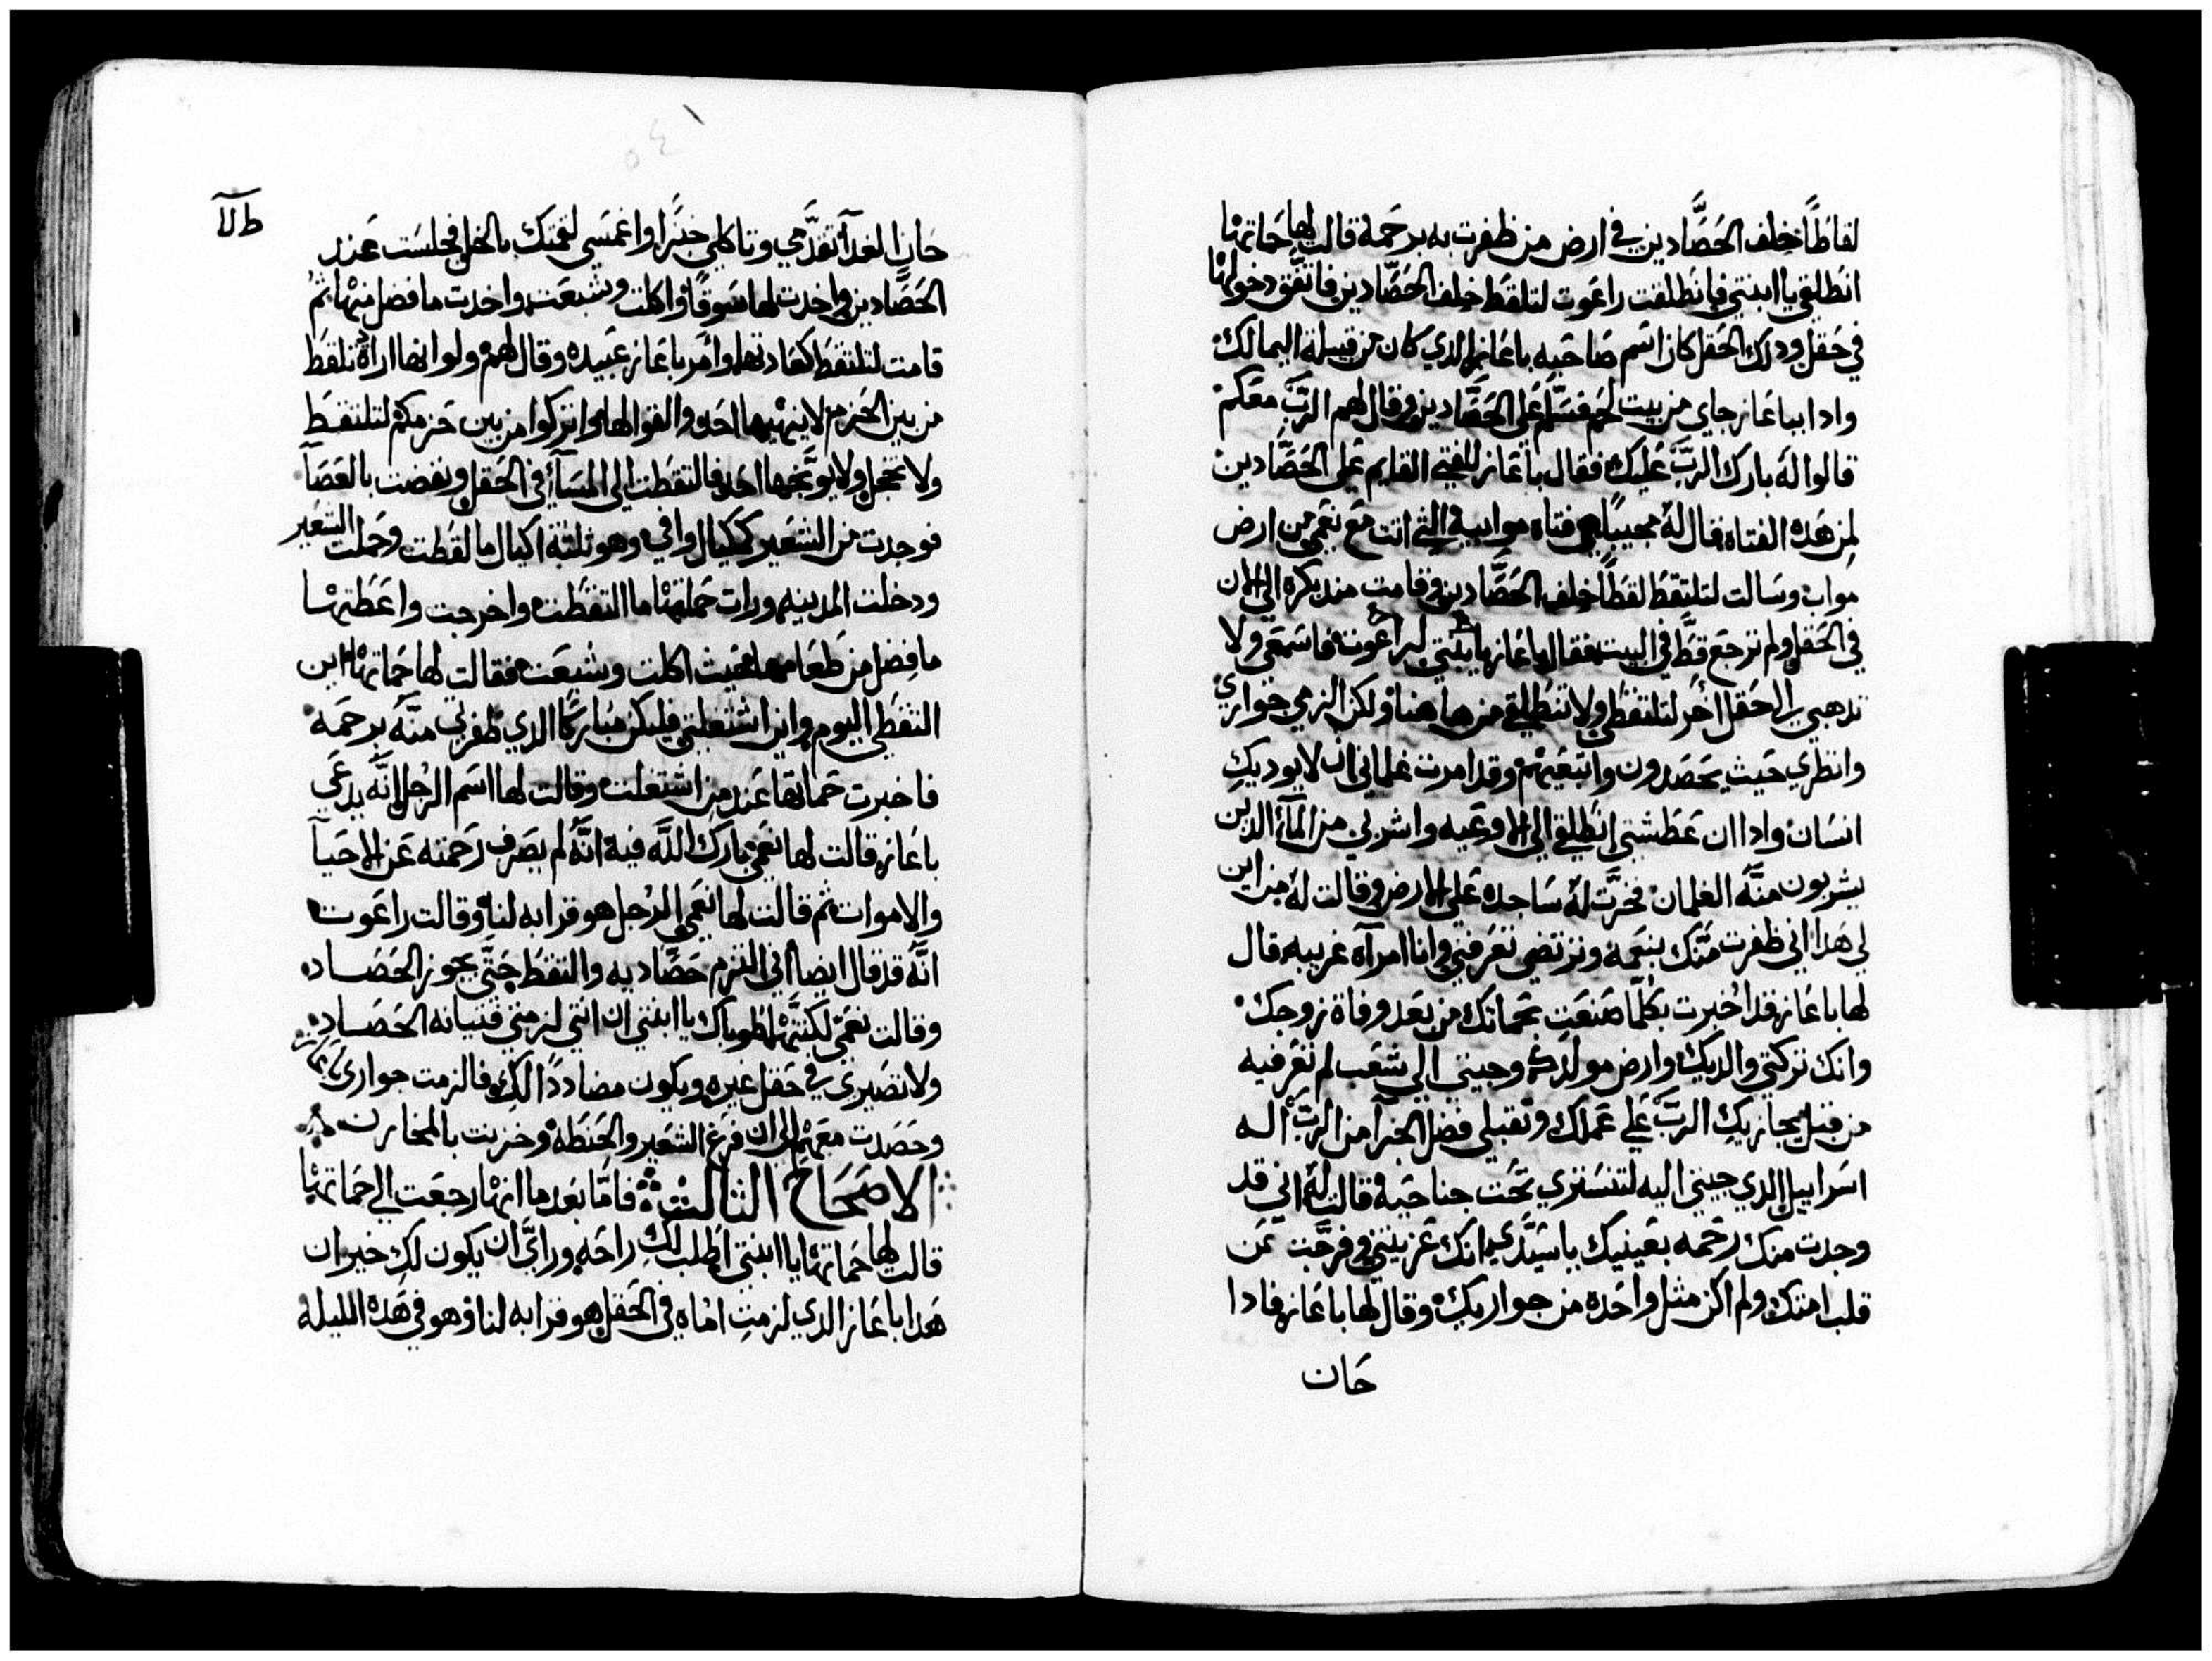 لقاطًا خلف الحَصَّادين في ارض من ظفرت به برحمة قالت لها حماتها
انطلقي يا ابنتي فانطلقت راعوت لتلقط خلف الحصّادين فاتفق دخولها
في حقل ودلك الحقل كان اسم صاحبه باعاز الدي كان من قبيلة اليمالك
وادا بباعاز جاي من بيت لحم فسلّم على الحصّادين وقال لهم الربّ معكم
قالوا له بارك الربّ عليك فقال باعاز للفتي القايم علي الحصّادين
لمن هده الفتاه فقال له مجيبًا هي فتاه موابيه التي اتت مع نعمي من ارض
مواب وسالت لتلتقط لقطًا خلف الحصّادين وقامت مند بكره الي الان
في الحقل ولم ترجع قطّ في البيت فقال باعاز يا بنتي راعوت فاسمعي ولا
تدهبي الي حقل اخر لتلتقطي ولا تنطلقي من هاهنا ولكن الزمي جواري
وانظري حيث يحصدون واتبعيهم وقد امرت غلماني ان لا يوديكِ
انسان وادا ان عطشتي انطلقي الي الاوعيه واشربي من الماء الدين
يشربون منّه الغلمان فخرّت له ساجده علي الارض وقالت له من اين
لي هدا اني ظفرت منّك بنعمه وترتضي تعرفني وانا امرآه غريبه قال
لها باعاز قد اخبرت بكلّما صنعتِ بحماتك من بعد وفاة زوجك
وانك تركتي والديك وارض مولدك وجيتي الي شعب لم تعرفيه
من قبل يجازيكِ الربّ علي عملك وتقبلي فضل الجزا من الربّ اله
اسراييل الدي جيتي اليه لتتستري تحت جناحيه قالت له اني قد
وجدت منك رحمه بعينيك يا سيّدي انك عزيتني وفرحت من
قلب امتك ولم اكن مثل واحده من جواريك وقال لها باعاز فادا
حان
طلآ
حان الغدآ تقدّمي وتاكلي خبزًا واغمسي لقمتك بالخل فجلست عند
الحصّادين واخدت لها سَوقًا واكلت وشبعت واخدت ما فضل منها ثم
قامت لتلتقط كعادتها وامر باعاز عبيده وقال لهم ولو انها اراده تلقط
من بين الحزم لا ينهيها احد والقوا لها واتركوا من بين حزمكم لتلتقط
ولا تخجل ولا يوبّخها احد فالتقطت الي المسآ في الحقل ونفضت بالعصآ
فوجدت من الشعير كمكيال وافي وهو تلته اكيال ما لقطت وحملت الشعير
ودخلت المدينه ورات حماتها ما التقطت واخرجت واعطتها
ما فضل من طعامها حيث اكلت وشبعت فقالت لها حماتها اين
التقطي اليوم واين اشتعلتي فليكن مباركًا الدي ظفرتي منّه برحمه
فاخبرت حماتها عند من اشتعلت وقالت لها اسم الرجل انّه يدعي
باعاز قالت لها نعمي بارك اللّه فيه انّه لم يصرف رحمته عن الاحيآ
والاموات ثم قالت لها نعمي الرجل هو قرابه لنا وقالت راعوت
انّه قد قال ايضا اني التزم حصّاديه والتقط حتّي يحوز الحصاد
وقالت نعمي لكنتها طوباك يا ابنتي ان انتي لزمتي فتيانه الحصاد
ولا تصيري في حقل غيره ويكون مضاددًا لكِ فالزمت جواري باعاز
وحصدت معهم الي ان فرغ الشعير والحنطه وخزنت بالمخازن
الاصحاح الثالث فامّا بعد ما انها رجعت الي حماتها
قالت لها حماتها يا ابنتي اطلب لك راحه ورايّ ان يكون لكِ خير ان
هدا باعاز الدي لزمتِ اماه في الحقل هو قرابه لنا وهو في هده الليله